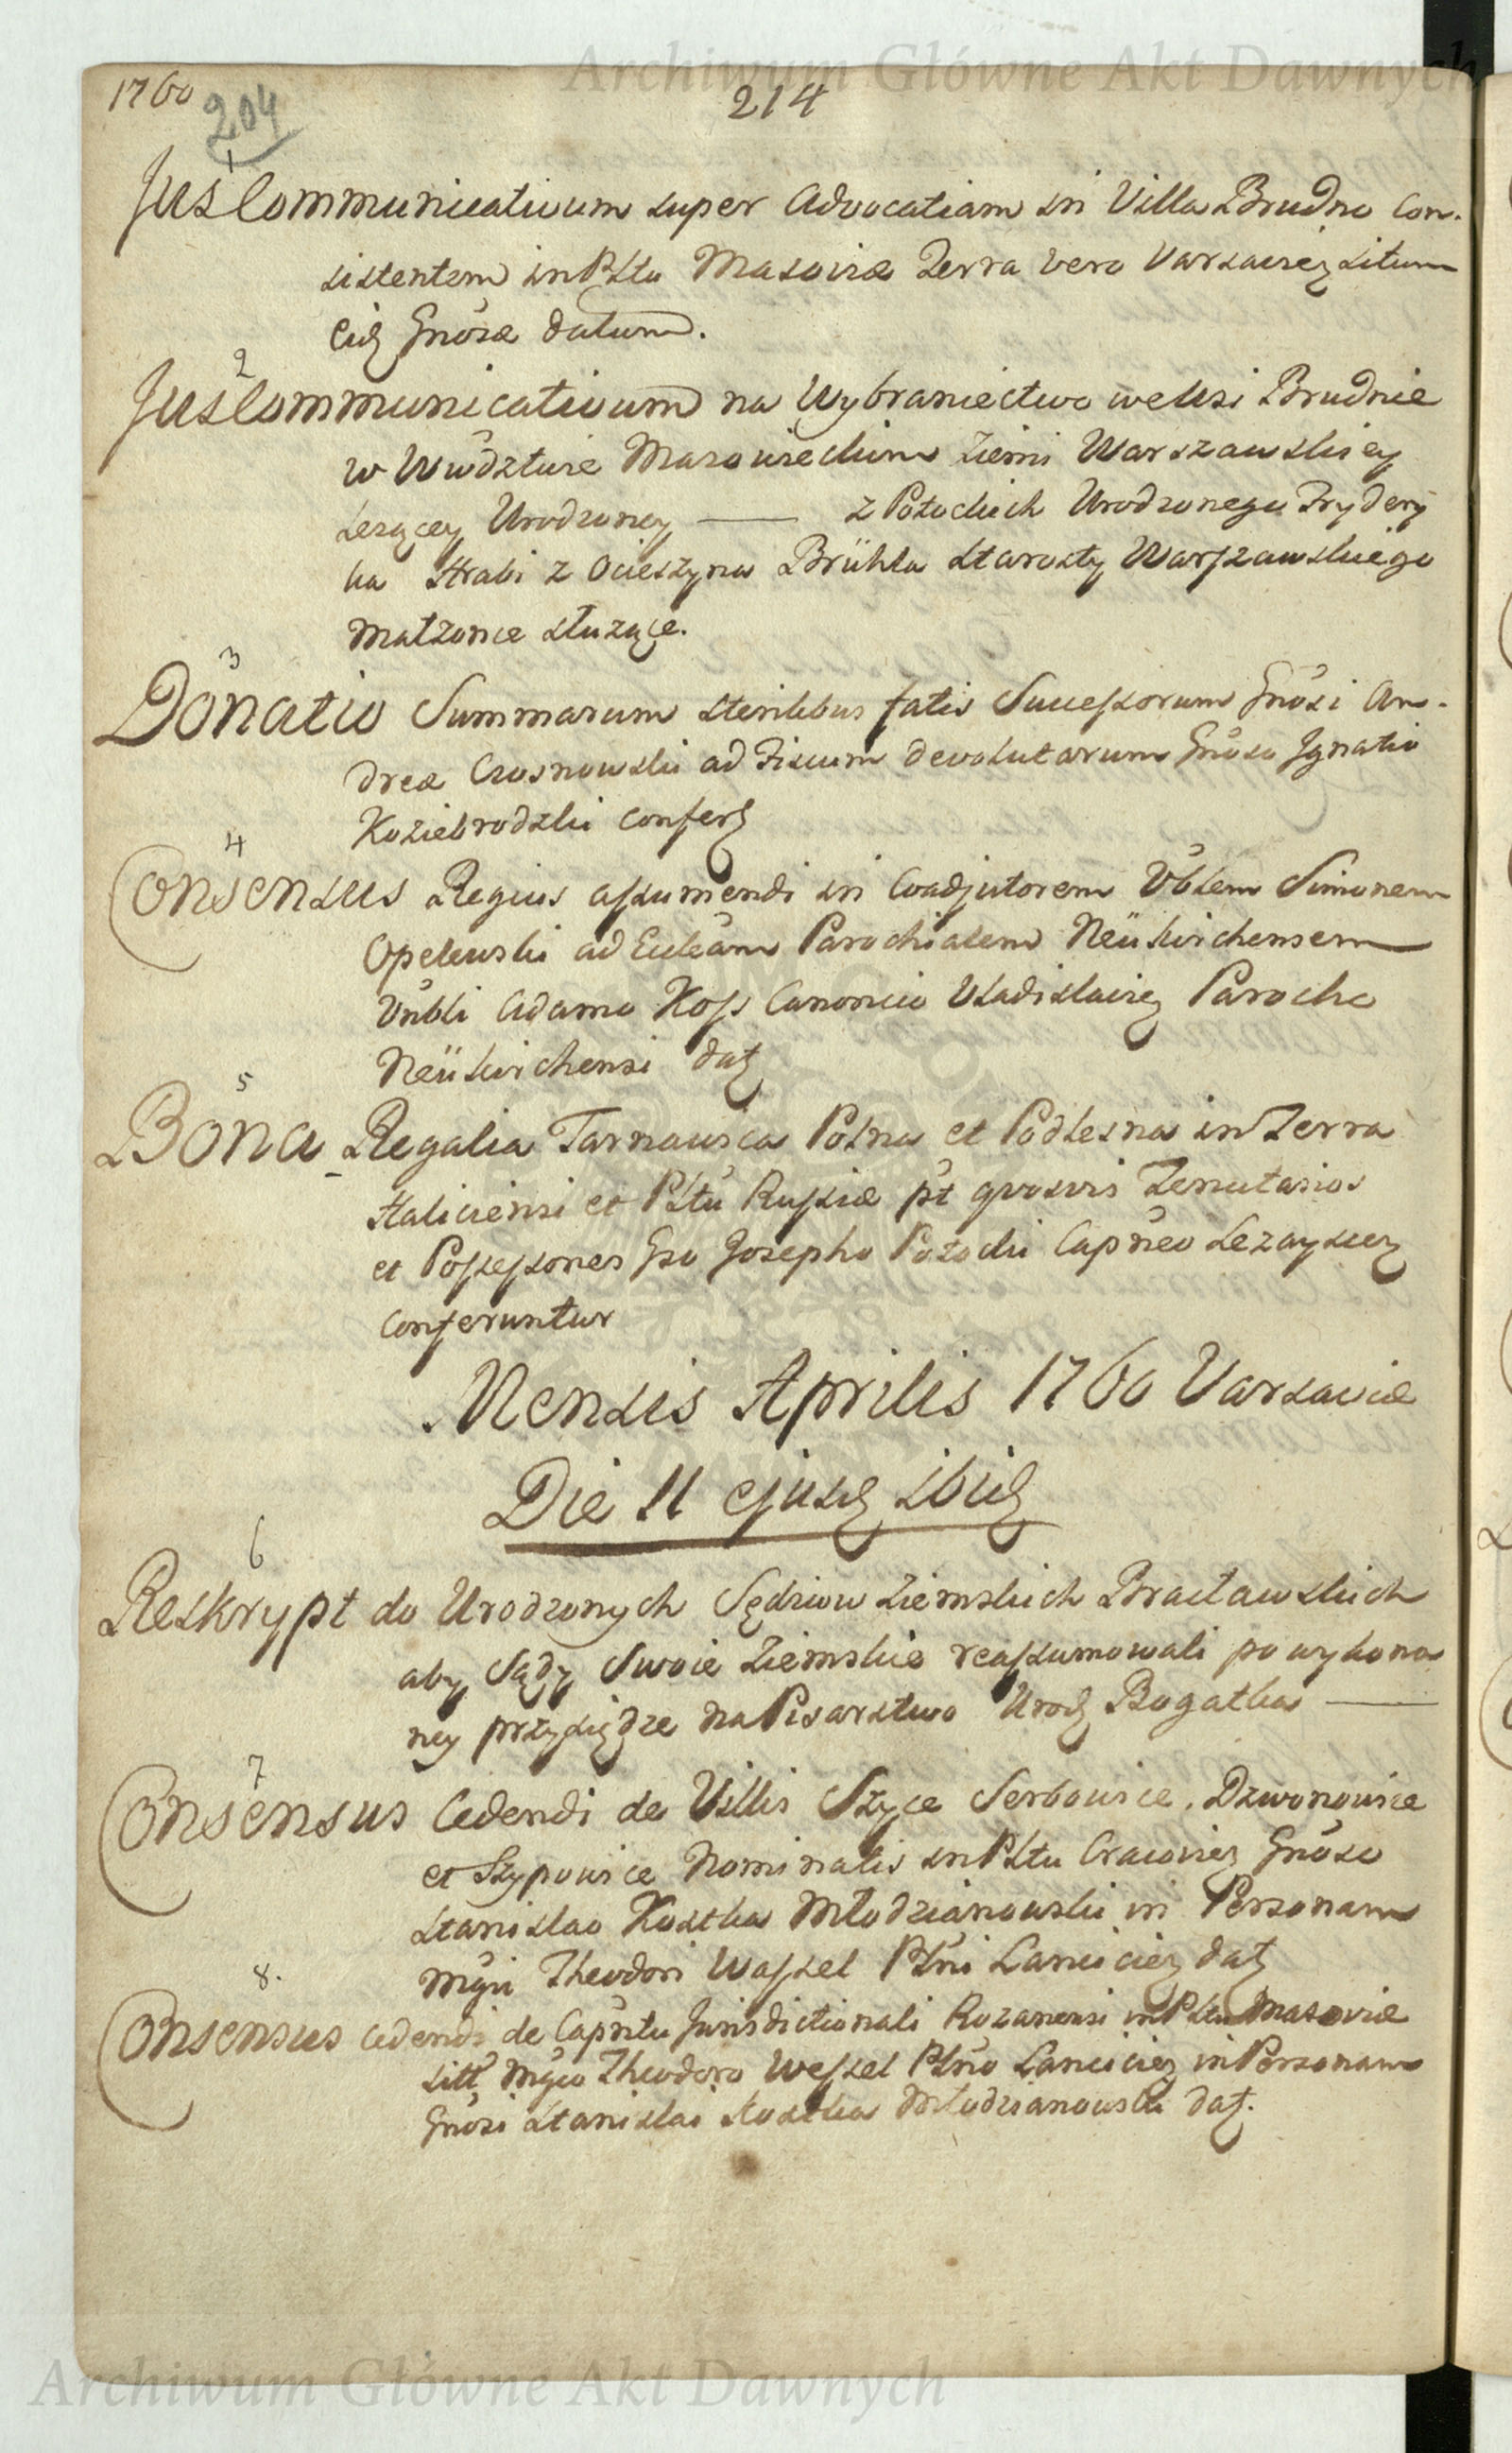 Archiwum Główne Akt Dawnych
1760 204 214
1
Jus Communicativum super Advocatiam in Villa Brudno con-
sistentem in Pltu Masoviæ Terra vero Varsavieñ situm
eid Gnosæ datum.
2
Jus Communicativum na Wybraniectwo we Wsi Brudnie
w Wwdztwie Mazowieckim Ziemi Warszawskiey
Lezącey Urodzoney —— z Potockich Urodzonego Frydery
ka Hrabi z Ocieszyna Brühla Starosty Warszawskiego
Małzonce słuzące.
3
Donatio Summarum sterilibus fatis Successorum Gnosi An-
dreæ Czosnowski ad Fiscum devolutarum Gnoso Ignatio
Koziebrodzki confert
4
Consensus Regius assumendi in Coadjutorem Vblem Simonem
Opelewski ad Ecclêam Parochialem Neükirchensem
Vnbli Adamo Koss Canonico Vladislavień Parocho
Neükirchensi dat
5
Bona Regalia Tarnawica Polna et Podlesna in Terra
Haliciensi et Pltu Russiæ pt quosvis Tenutarios
et Possessores Gso Josepho Potocki Capneo Lezayscen
conferuntur
Mensis Aprilis 1760 Varsaviæ
Die 11 ejusd ibid
6
Reskrypt do Urodzonych Sędziow Ziemskich Bracławskich
aby Sądy Swoie Ziemskie reassumowali po wykona
ney przysiędze na Pisarstwo Urod Bogatka ——
7
Consensus Cedendi de Villis Szyce Serbowice, Dzwonowice
et Szypowice Nominatis in Pltu Cracovień Gnoso
Stanislao Kostka Młodzianowski in Personam
Mgci Theodori Wessel Płni Lancicień dat
8.
Consensus cedendi de Capnêtu Jurisdictionali Rozanensi in Pltu Masoviæ
sitt Mgco Theodoro Wessel Płno Lancicień in Personam
Gnosi Stanislai Kostka Młodzianowski dat.
Archiwum Główne Akt Dawnych